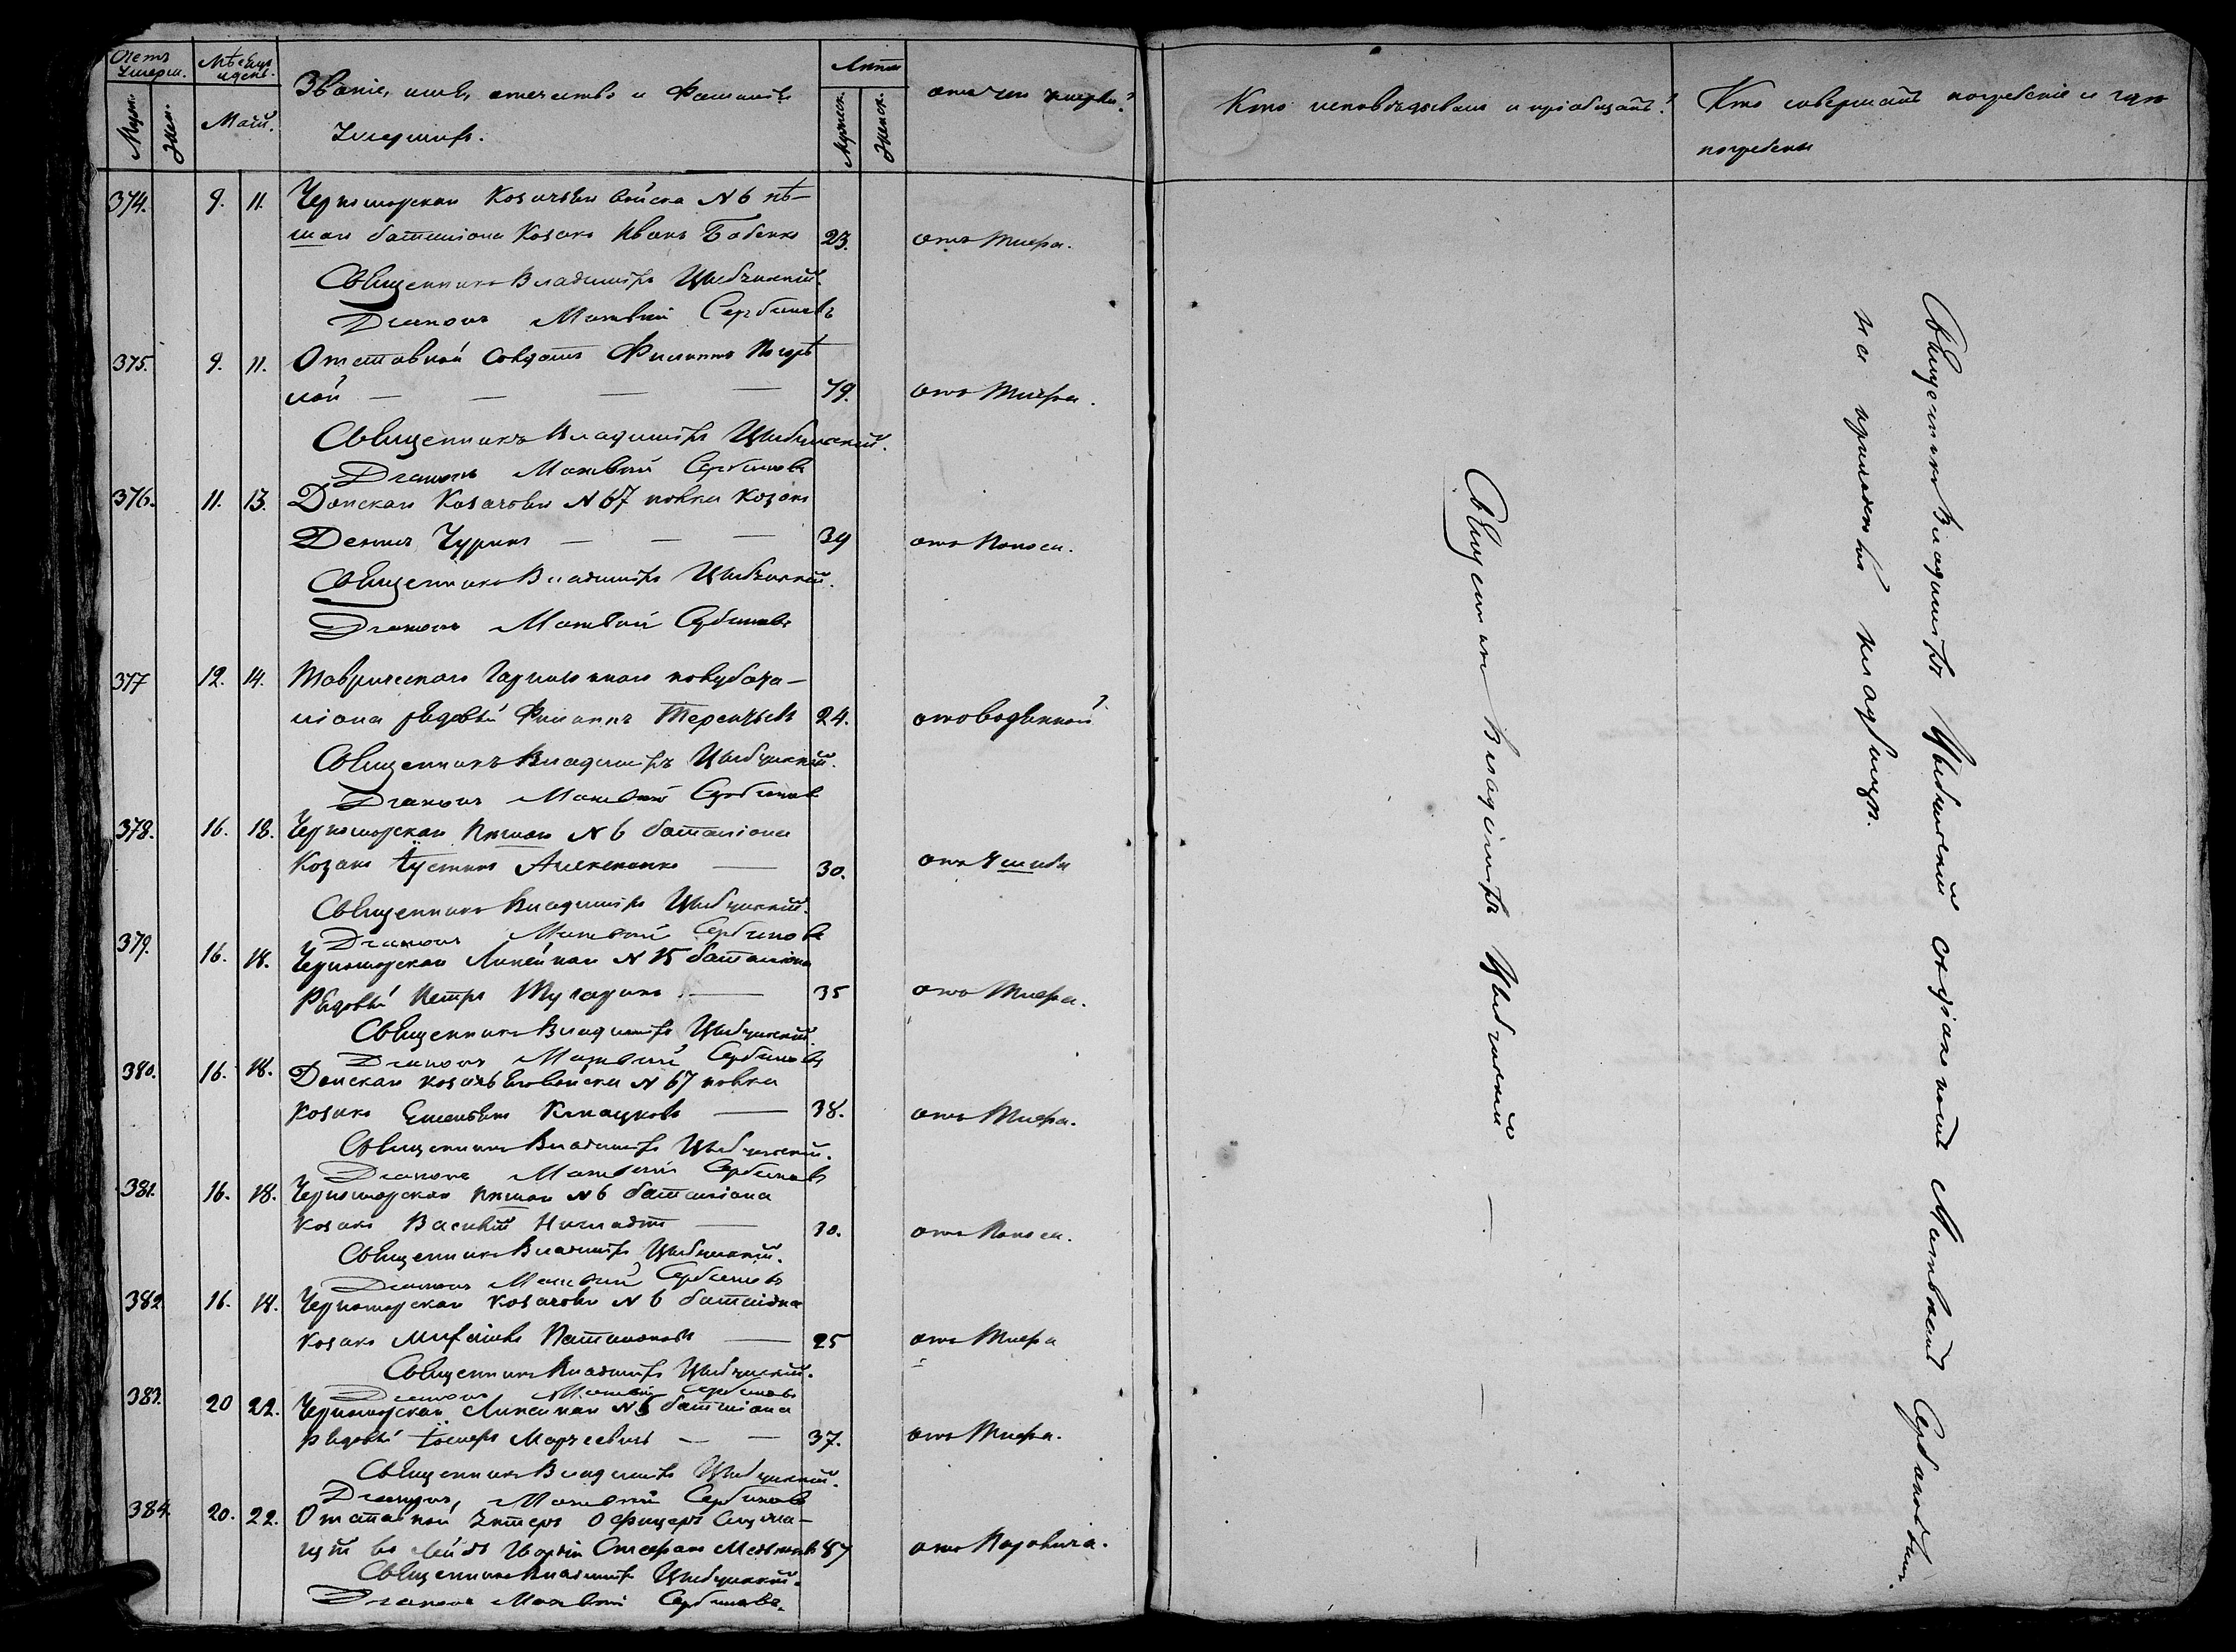 Счетъ умерш.
Муж. Жен.
Мѣсяцъ и день.
Май.
Званіе, имя, отечество и Фамилія
Умершихъ.
Лета
Мужеск. Женск.
отъ чего умеръ?
Кто исповѣдывалъ и пріобщалъ?
Кто совершалъ погребеніе и гдѣ
погребены
374. 9. 11. Черноморскаго Козачьяго войска N 6 пѣ-
шаго баталіона Козакъ Иванъ Бабенко 23. отъ Тифа.
Священникъ Владиміръ Цыбчинскій.
Діаконъ Матвѣй Сербиновъ
375. 9. 11. Отставной Солдатъ Филиппъ Погорѣ
лой — — — 79. отъ Тифа.
Священникъ Владиміръ Цыбчинскій.
Діаконъ Матвѣй Сербиновъ
376. 11. 13. Донскаго Козачьяго N 67 полка Козакъ
Денисъ Чуринъ — — — 39 отъ Поноса.
Священникъ Владиміръ Цыбчинскій.
Діаконъ Матвѣй Сербиновъ
377 12. 14. Таврическаго Гарнизоннаго полубата-
ліона рядовый Филиппъ Терентьевъ 24. отъ водянной
Священникъ Владиміръ Цыбчинскій.
Діаконъ Матвѣй Сербиновъ
378. 16. 18. Черноморскаго Пѣшаго N 6 баталіона
Козакъ Іустинъ — 30. отъ Ушиба
Священникъ Владиміръ Цыбчинскій.
Діаконъ Матвѣй Сербиновъ
379. 16. 18. Черноморскаго Линейнаго N 15 баталіона
Рядовый Петръ — 35 отъ Тифа.
Священникъ Владиміръ Цыбчинскій.
Діаконъ Матвѣй Сербиновъ
380. 16. 18. Донскаго козачьяго войска N 67 полка
Козакъ Емельянъ — 38. отъ Тифа.
Священникъ Владиміръ Цыбчинскій.
Діаконъ Матвѣй Сербиновъ
381. 16. 18. Черноморскаго пѣшаго N 6 баталіона
Козакъ Василій — 30. отъ Поноса.
Священникъ Владиміръ Цыбчинскій.
Діаконъ Матвѣй Сербиновъ
382 16. 18. Черноморскаго Козачьяго N 6 баталіона
Козакъ Михаилъ — 25 отъ Тифа
Священникъ Владиміръ Цыбчинскій.
Діаконъ Матвѣй Сербиновъ
383. 20 22. Черноморскаго Линейнаго баталіона
рядовый — — 37. отъ Тифа.
Священникъ Владиміръ Цыбчинскій.
Діаконъ, Матвѣй Сербиновъ
384. 20. 22. Отставной Унтеръ Офицеръ
Стефанъ 87 отъ Паралича.
Священникъ Владиміръ Цыбчинскій.
Діаконъ Матвѣй Сербиновъ.
Священникъ Владиміръ Цыбчинскій — — —
Священникъ Владиміръ Цыбчинскій съ діакономъ Матвѣемъ Сербиновымъ.
на кладбищѣ.